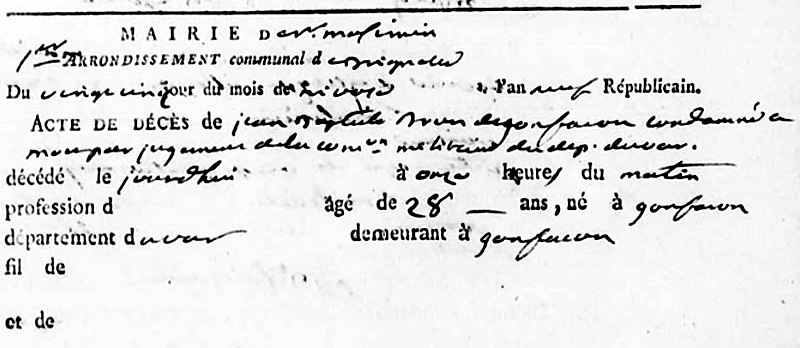 MAIRIE De St. maximin
1er ARRONDISSEMENT communal d e brignolle
Du vingt cinq jour du mois de nivose l'an neuf Républicain.
ACTE DE DÉCÈS de jean baptiste brun de gonfaron condamné a
mort par jugement de la com.on militaire du dep. du var.
décédé le jourdhui à onze heures du matin
profession d âgé de 28 ans, né à gonfaron
département du var demeurant à gonfaron
fil de
et de